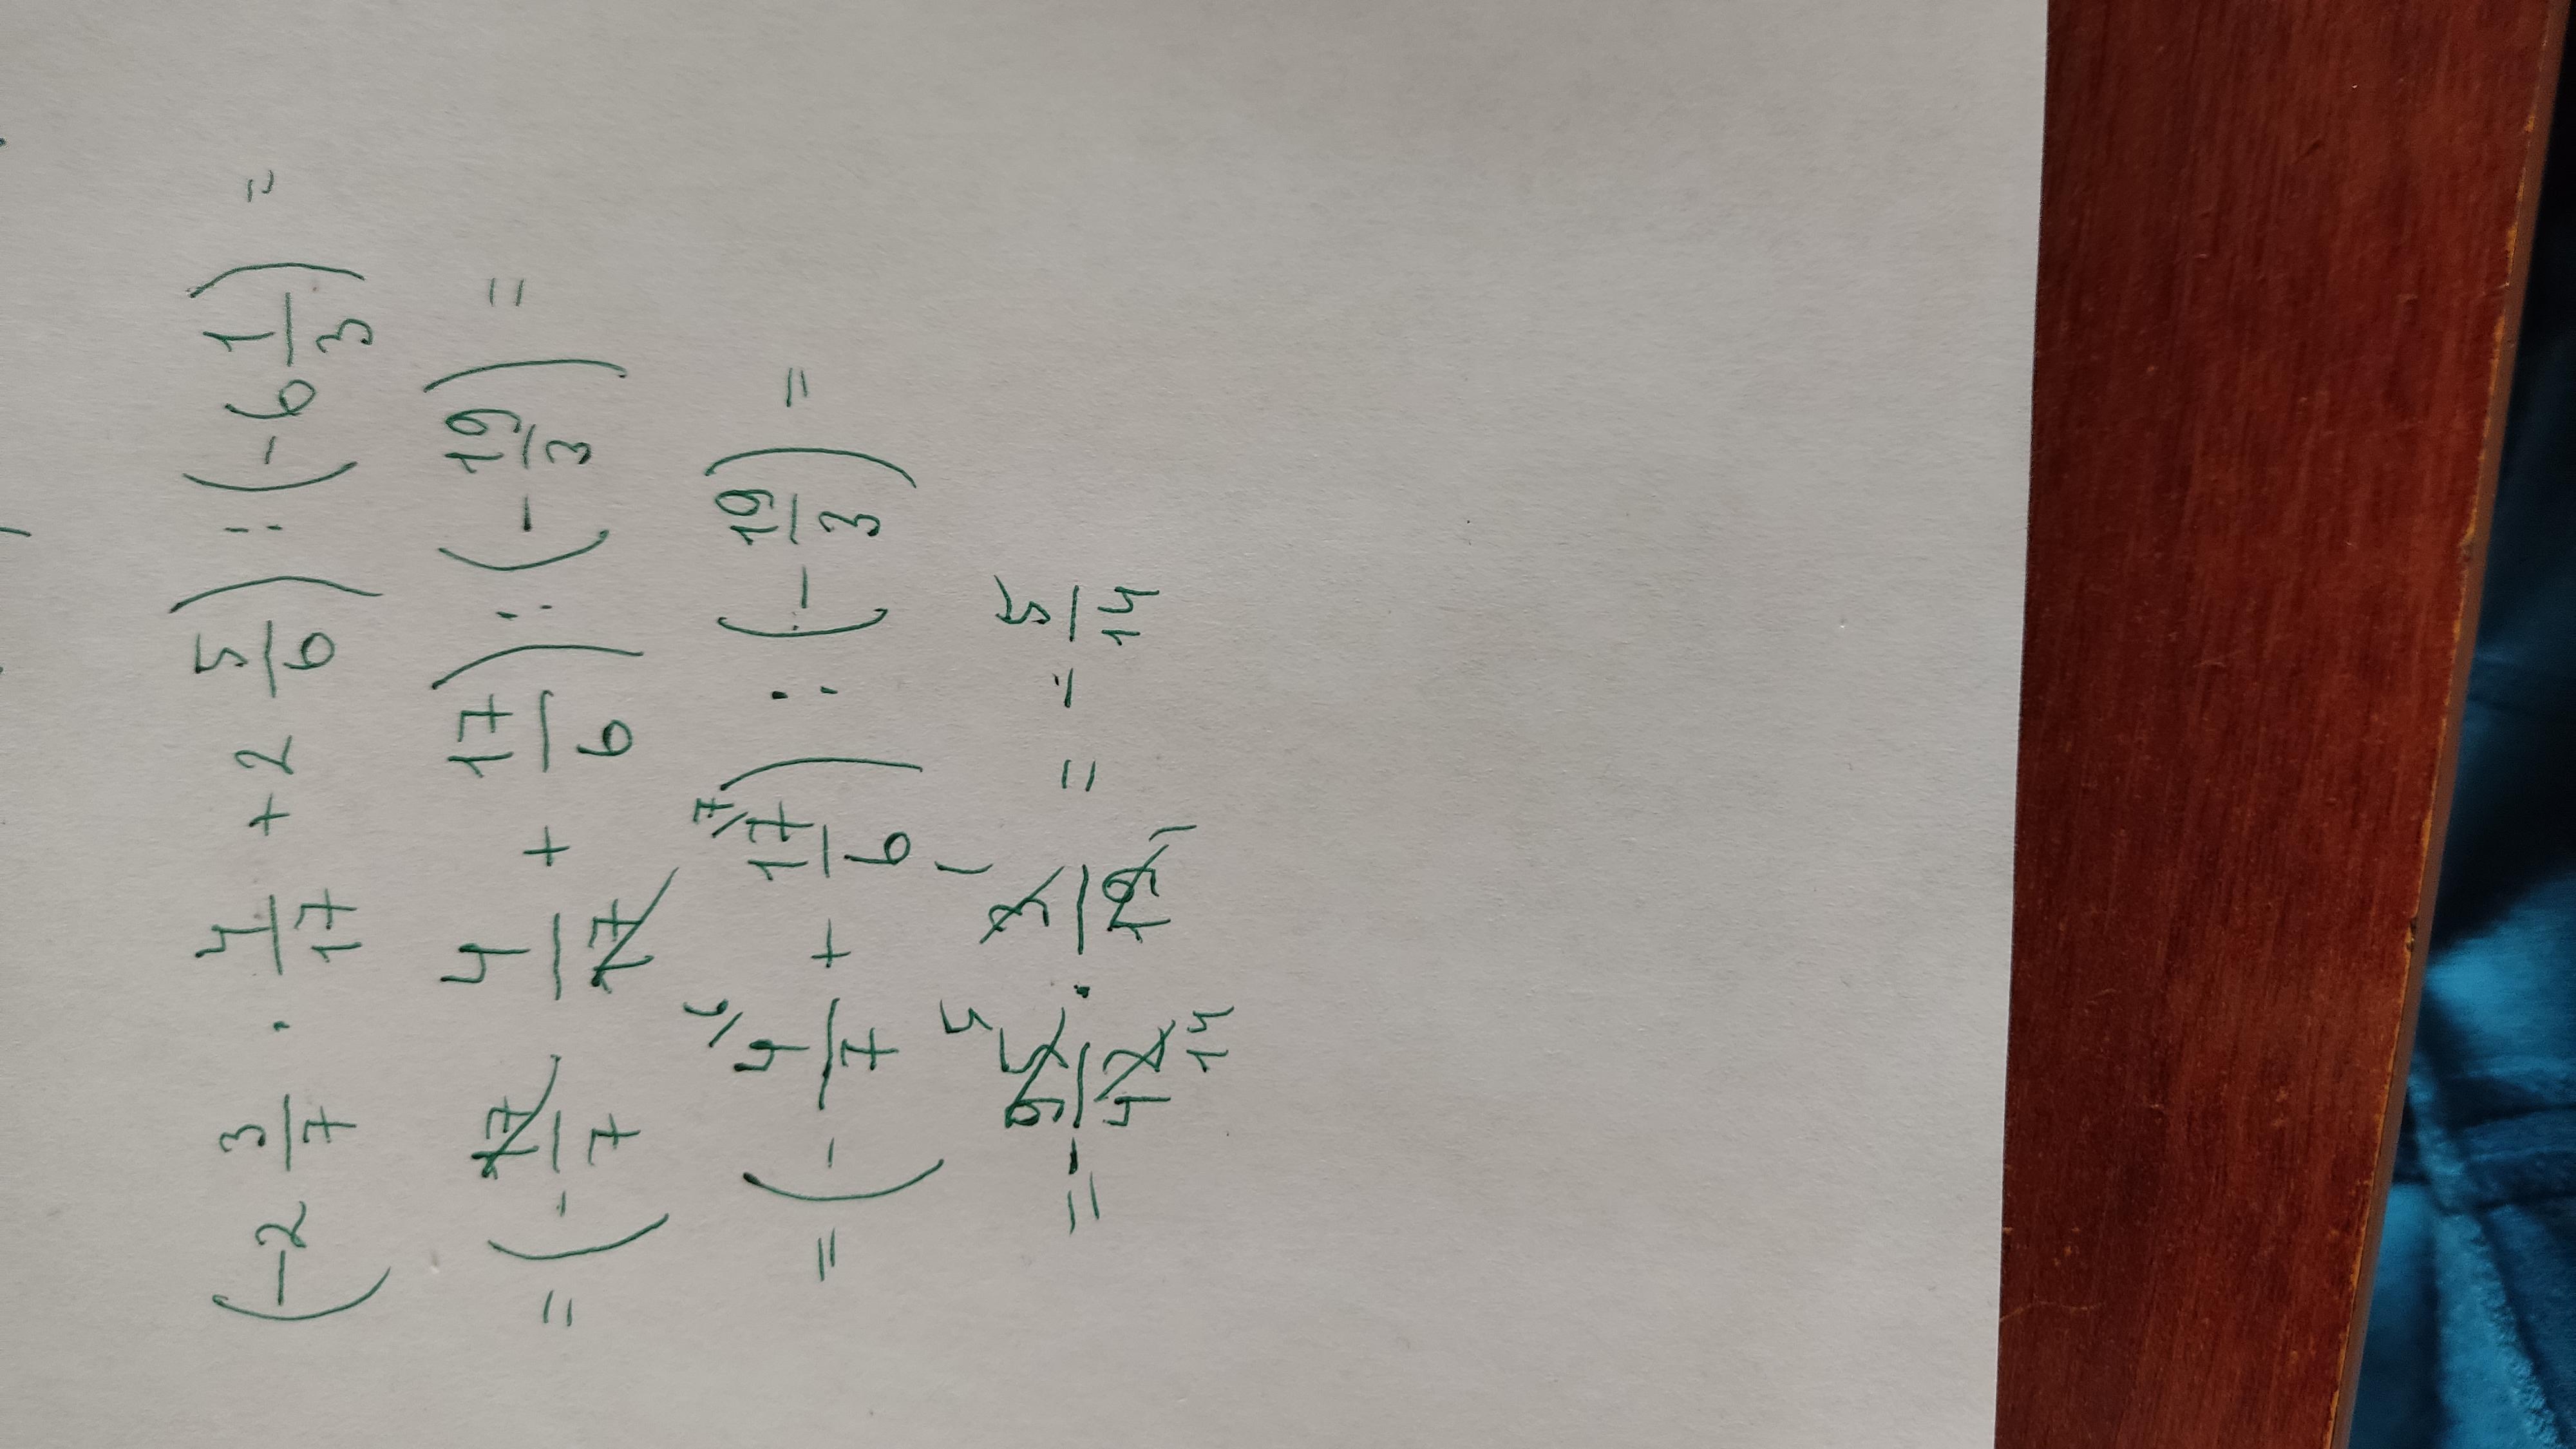 (-2 3/7 · 4/17 + 2 5/6) : (-6 1/3) =
= (- 17/7 · 4/17 + 17/6) : (- 19/3) =
= (- 4/7 + 17/6) : (- 19/3) =
= - 95/42 · 3/19 = - 5/14